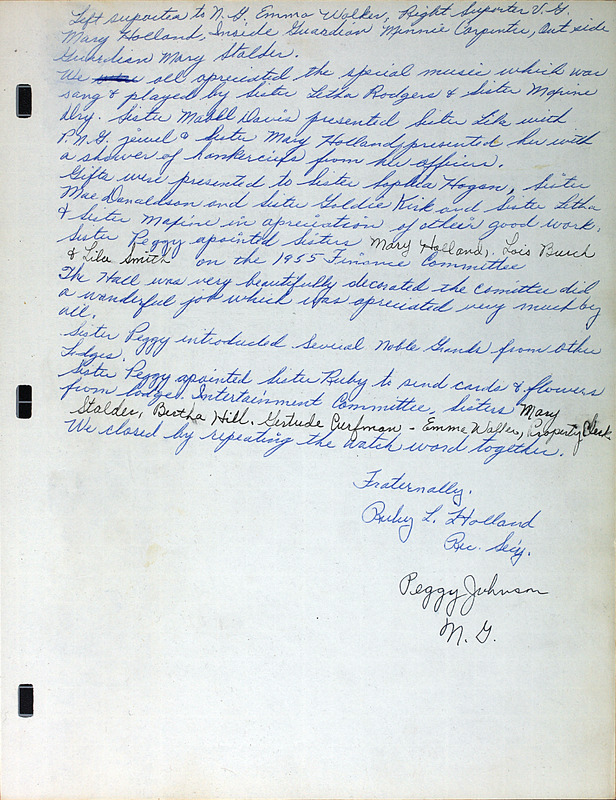 Left suporter to N.G. Emma Walker, Right Suporter V.G.
Mary Holland, Inside Guardian Minnie Carpenter, Out side
Guardian Mary Stalder.
We all apreciated the special music which was
sang & played by Sister Letha Rodgers & Sister Maxine
Dry. Sister Mabell Davis presented Sister Lila with
P.N.G. jewel & Sister Mary Holland presented her with
a shower of hankercifs from her officers.
Gifts were presented to Sister Sophia Hogan, Sister
Mae Donaldson and Sister Goldie Kirk and Sister Letha
& Sister Maxine in apreciation of their good work.
Sister Peggy apointed Sisters Mary Holland, Lois Burch
& Lila Smith on the 1955 Finance Committee
The Hall was very beautifully decorated the Comittee did
a wonderful job which was apreciated very much by
all.
Sister Peggy introduced Several Noble Grands from other
Lodges.
Sister Peggy apointed Sister Ruby to send cards & flowers
from lodge. Intertainment Committee, Sisters Mary
Stalder, Bertha Hill, Gertrude Curfman - Emma Walker, Property Clerk
We closed by repeating the watch word together.
Fraternally,
Ruby L. Holland
Rec. Sec'y.
Peggy Johnson
N. G.